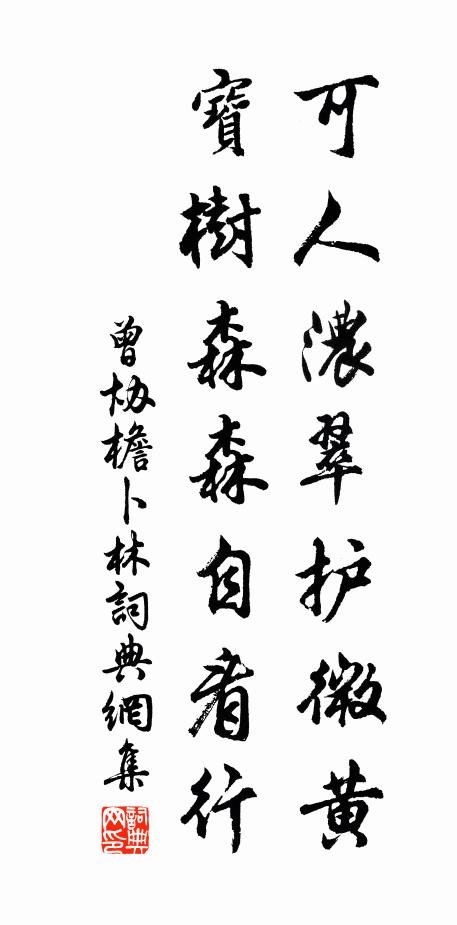 可人濃翠护微黄
寶樹森森自行
曾协檐卜林詞典網集
詞典网印